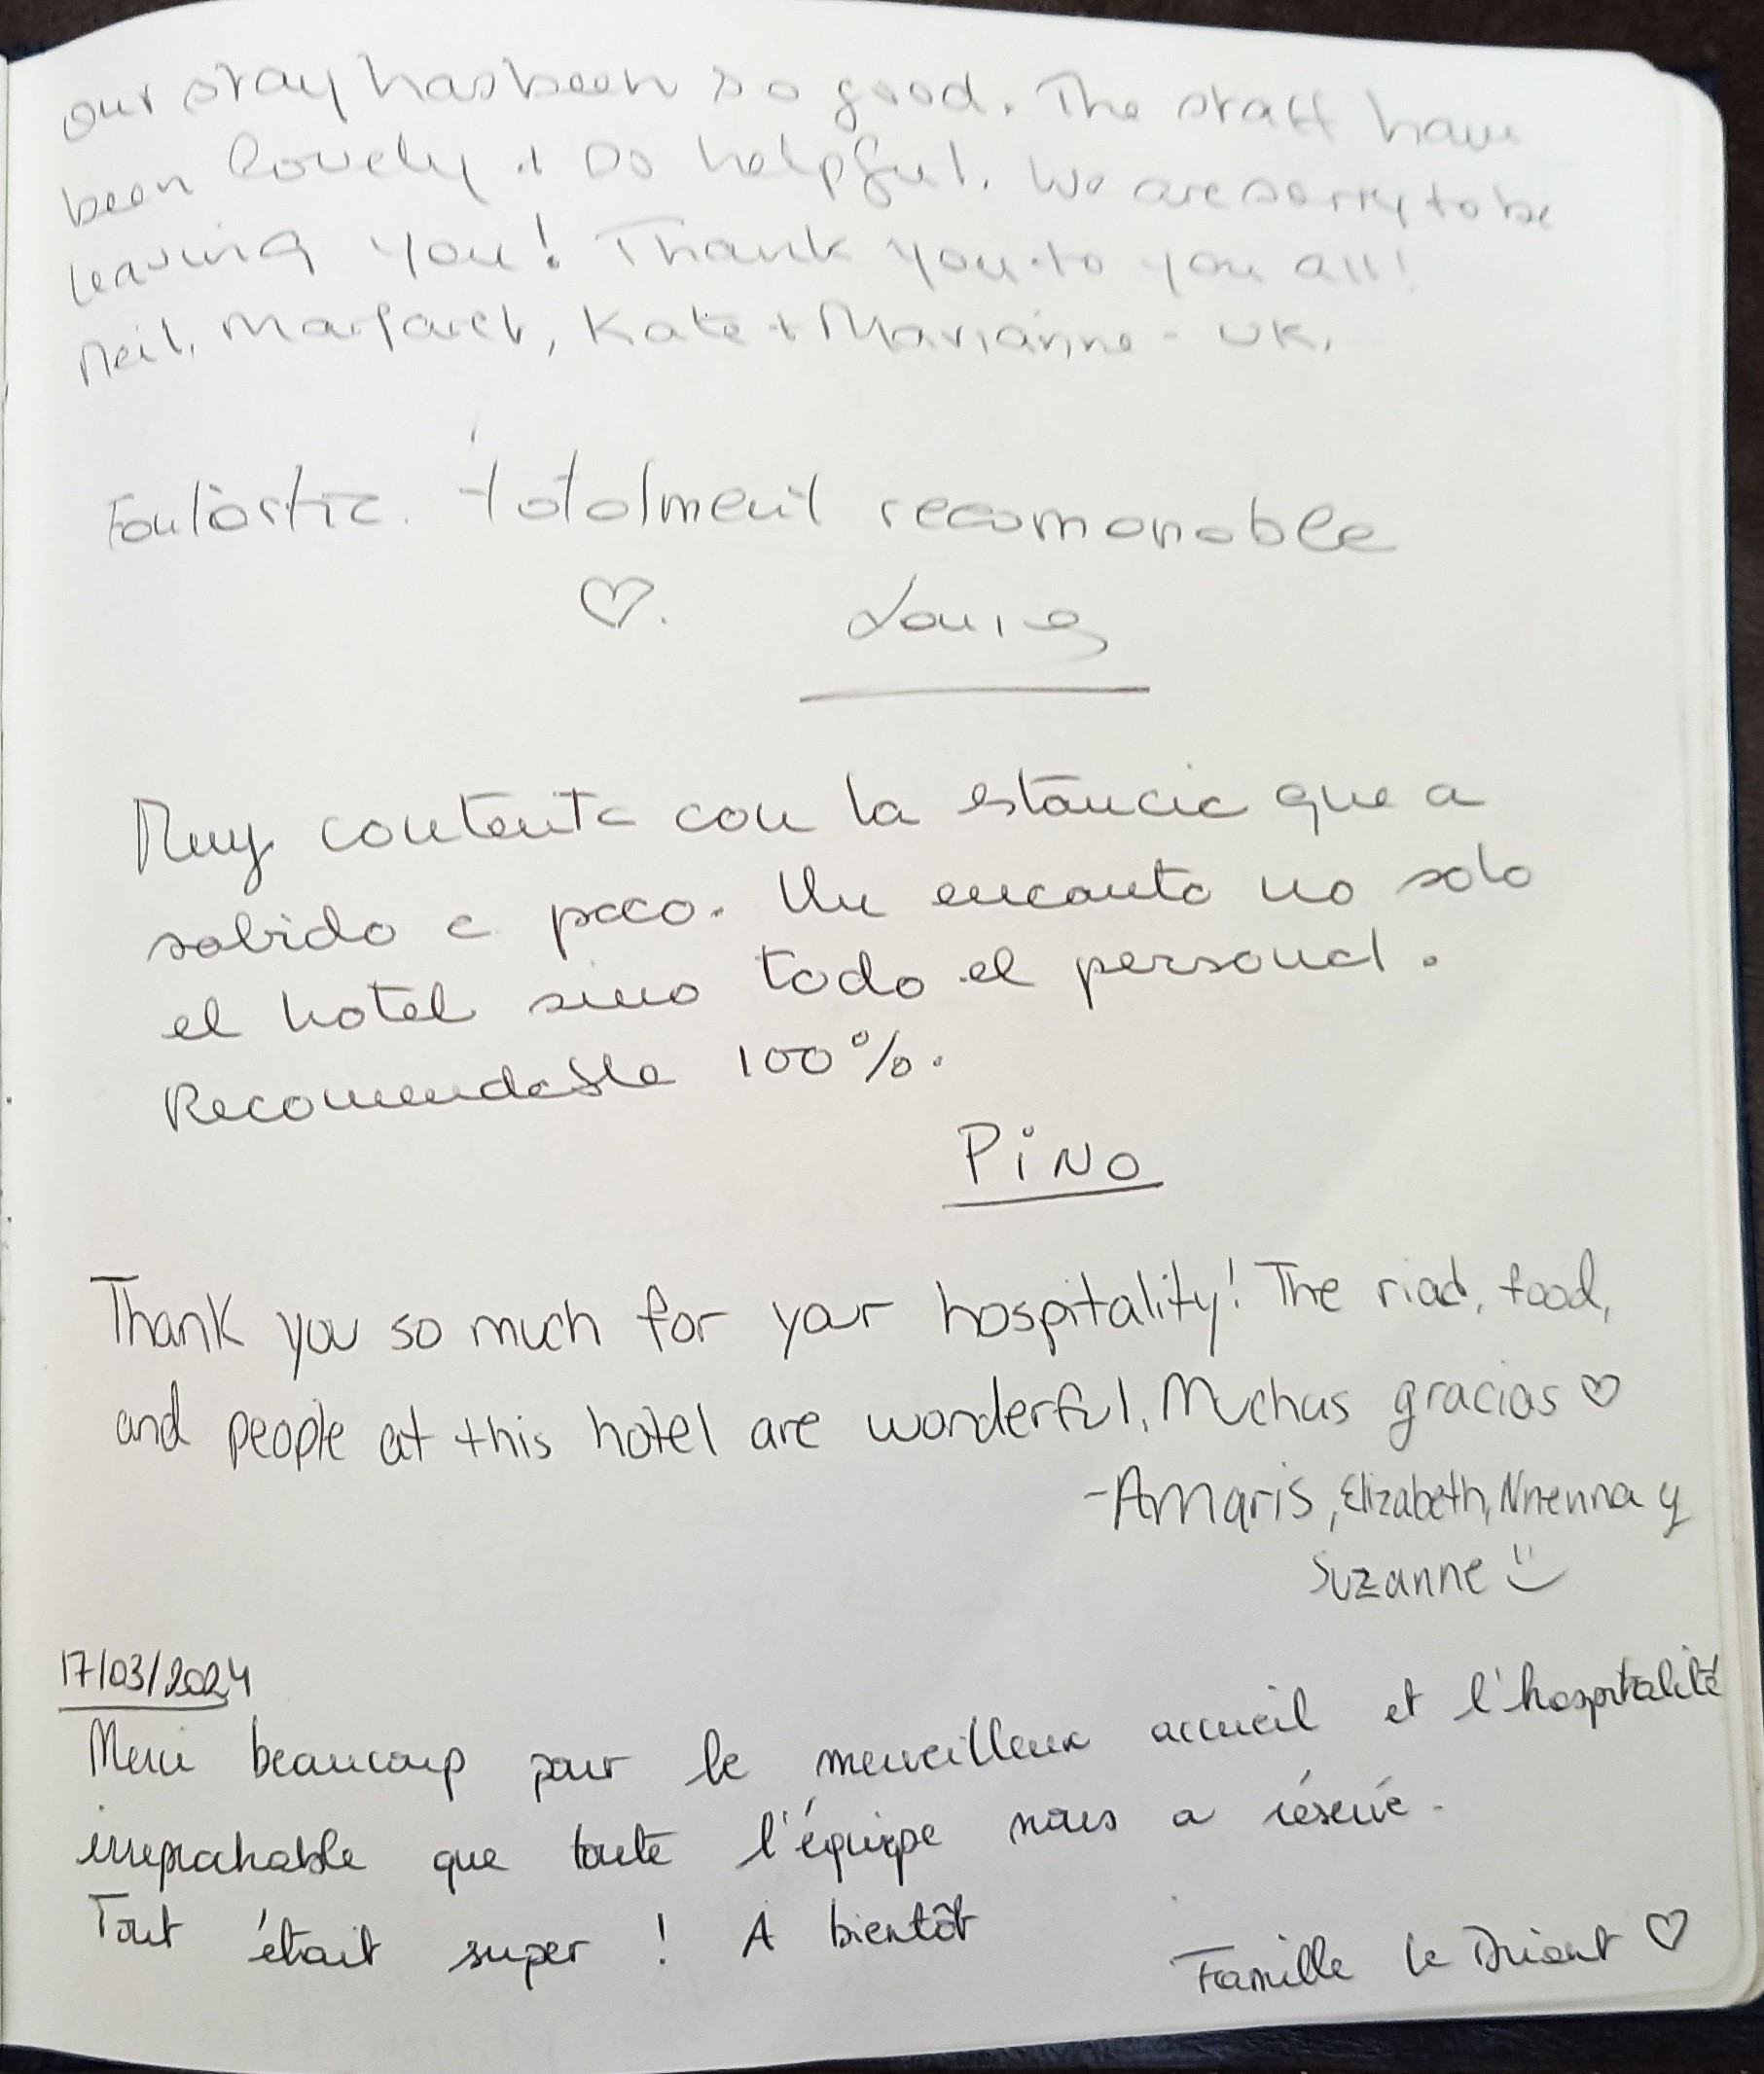 our stay has been so good. The staff have
been lovely + so helpful. We are sorry to be
leaving you! Thank you to you all!
Neil, Margaret, Kate + Marianne - UK.
Fantàstic. totalment recomanable
♡.
Muy contenta con la estancia que a
sabido a poco. Un encanto no solo
el hotel sino todo el personal.
Recomendable 100%.
PiNO
Thank you so much for your hospitality! The riad, food,
and people at this hotel are wonderful. Muchas gracias ♡
-Amaris, Elizabeth, Nnenna y
Suzanne
17/03/2024
Merci beaucoup pour le merveilleux accueil et l'hospitalité
irreprochable que toute l'équipe nous a réservé.
Tout était super ! A bientôt
Famille Le ♡